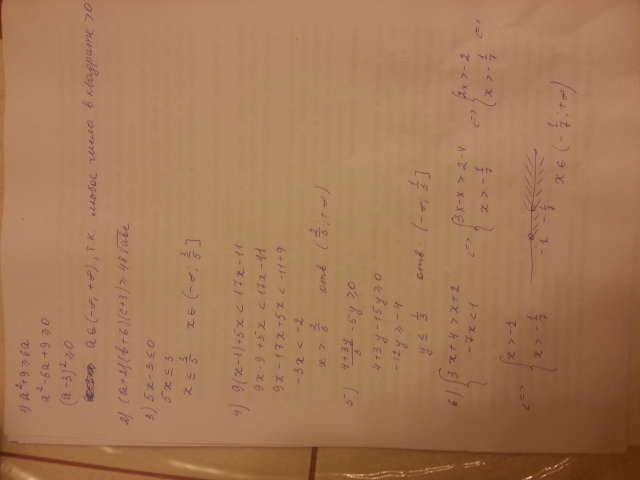 1) a²+9≥6a
a²-6a+9≥0
(a-3)²≥0
a∈(-∞,+∞), т.к любое число в квадрате >0
3) 5x-3≤0
5x≤3
x≤3/5 x∈(-∞; 3/5]
4) 9(x-1)+5x<17x-11
9x-9+5x<17x-11
9x-17x+5x<-11+9
-3x<-2
x>2/3 отв (2/3;+∞)
5) (4+3y)/3 -5y≥0
4+3y-15y≥0
-12y≥-4
y≤1/3 отв. (-∞, 1/3]
6) {3x+4>x+2 <=> {3x-x>2-4 <=> {2x>-2 <=>
-7x<1 x>-1/7 x>-1/7
<=> {x>-1
x>-1/7
-1 -1/7
x∈(-1/7;+∞)